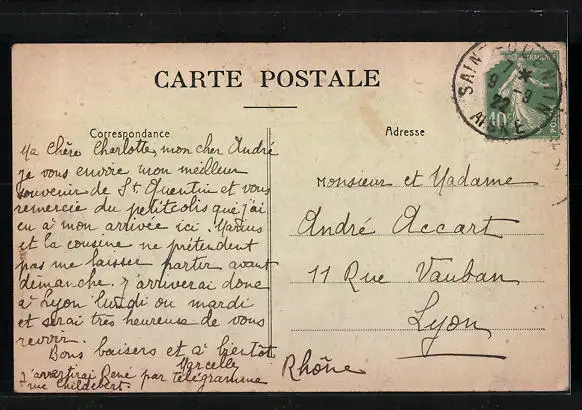 CARTE POSTALE
Correspondance
Ma Chère Charlotte, mon cher André
je vous envoie mon meilleur
souvenir de St Quentin et vous
remercie du petit colis que j'ai
eu à mon arrivée ici. Marius
et la cousine ne prétendent
pas me laisser partir avant
démanche. J'arriverai donc
à Lyon lundi ou mardi
et serai très heureuse de vous
revoir.
Bons baisers et à bientot
Marcelle
J'avertirai René par télégramme
rue Childebert.
Adresse
Monsieur et Madame
André Accart
11 Rue Vauban
Lyon
Rhône
SAINT-QUENTIN
9 *
-3
22
AISNE
10c
POSTES